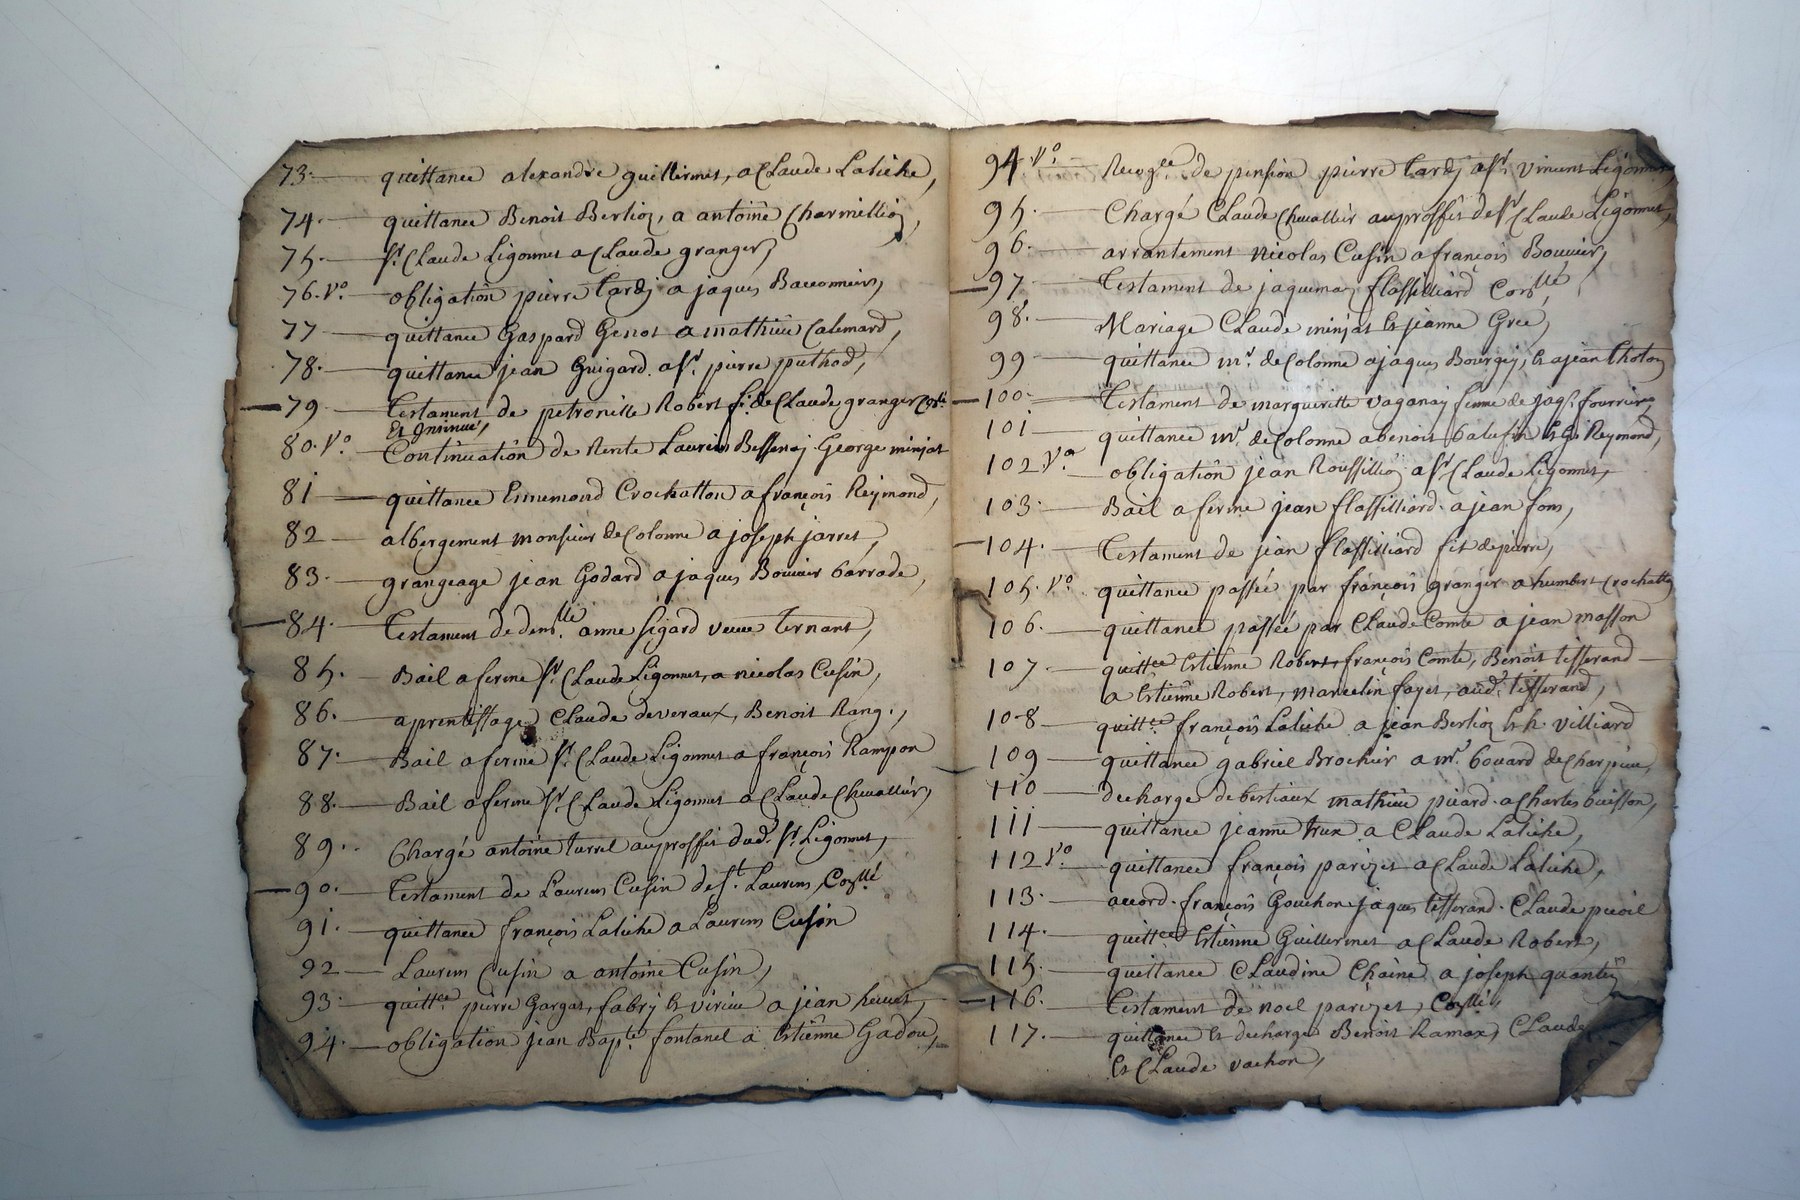 73. quittance alexandre guillermet, a Claude Laliche,
74. quittance Benoit Berlioz, a antoine Charmillion,
75. Sr. Claude Ligonnet a Claude granger,
76. Vo. obligation pierre tardy a jaques
77 quittance Gaspard Genot a mathieu Calemard,
78. quittance jean Guigard a Sr. pierre puthod,
79 Testament de petronille Robert fe. de Claude granger
Et Insinué,
80. Vo. Continuation de Rente Laurens George minjat
81 quittance Ennemond Crochatton a françois Reymond,
82 albergement monsieur de Colonne a joseph jarret,
83. grangeage jean Godard a jaques Bouvier barrade,
84. Testament de demlle. anne sigard veuve ternant,
85. Bail a ferme Sr. Claude Ligonnet, a nicolas Cusin,
86. aprentissage Claude deveraux, Benoit Rang.,
87. Bail a ferme Sr. Claude Ligonnet a françois Rampon
88. Bail a ferme Sr. Claude Ligonnet a Claude Chevallier,
89. Chargé antoine turrel au proffit dud. Sr. Ligonnet,
90. Testament de Laurens Cusin de St. Laurens,
91. quittance françois Laliche a Laurens Cusin
92 Laurens Cusin a antoine Cusin,
93. quittce. pierre Gargat, fabry et virieu a jean
94. obligation jean Bapte. fontanel a Estienne Gadou,
94. Vo. de pension pierre tardy a Sr. vincent Ligonnet,
95. Chargé Claude Chevallier au proffit de Sr. Claude Ligonnet,
96. arrantement nicolas Cusin a françois Bouvier,
97 Testament de jaquemaz flassilliard
98. Mariage Claude minjat et jeanne Gree,
99 quittance mr. de Colonne a jaques Bourgey, et a jean thoton
100. Testament de margueritte vaganay femme de jaqs. fourrier,
101 quittance mr. de Colonne a benoit et G. Reymond,
102 Vo. obligation jean Roussillon a Sr. Claude Ligonnet,
103. Bail a ferme jean flassilliard a jean fom,
104. Testament de jean flassilliard fils de pierre,
105. Vo. quittance passée par françois granger a humbert Crochatton
106. quittance passée par Claude Comte a jean masson
107. quittce Estienne Robert, françois Comte, Benoit tisserand
a Estienne Robert, marcelin fayet, aud. tisserand,
108 quittce. françois Laliche a jean Berlioz et h. villiard
109 quittance gabriel Brochier a mr. bouard de Charpieu,
110 decharge de bertiaux mathieu picard a Charles buisson,
111 quittance jeanne trux a Claude Laliche,
112 Vo. quittance françois parizet a Claude Laliche,
113. accord françois Gouchon jaques tisserand. Claude
114. quittce Estienne Guillermet a Claude Robert,
115. quittance Claudine Chaine a joseph quantin
116. Testament de noel parizet,
117. quittance et decharge Benoit Ramax, Claude
et Claude vachon,